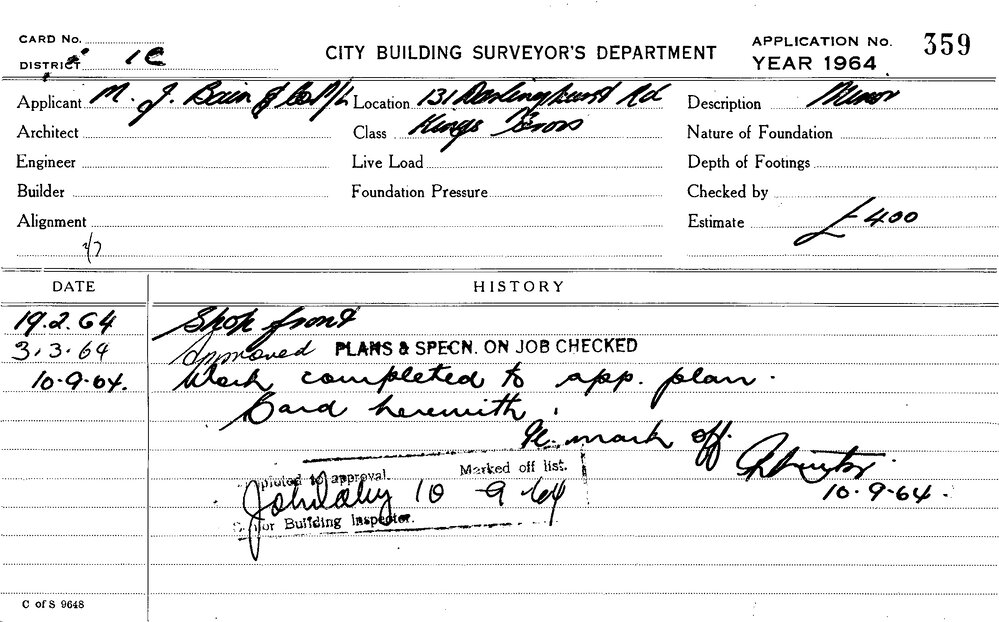 CARD No.
DISTRICT 1C
CITY BUILDING SURVEYOR'S DEPARTMENT
APPLICATION No. 359
YEAR 1964
Applicant M. J. Bain & Co P/L Location 131 Darlinghurst Rd Description Minor
Architect Class Kings Cross Nature of Foundation
Engineer Live Load Depth of Footings
Builder Foundation Pressure Checked by
Alignment Estimate £400
DATE HISTORY
19.2.64 Shop front
3.3.64 Approved PLANS & SPECN. ON JOB CHECKED
10.9.64. Work completed to app. plan.
Card herewith.
mark off.
10.9.64.
to approval. Marked off list.
10 9 64
Building Inspector.
C of S 9648